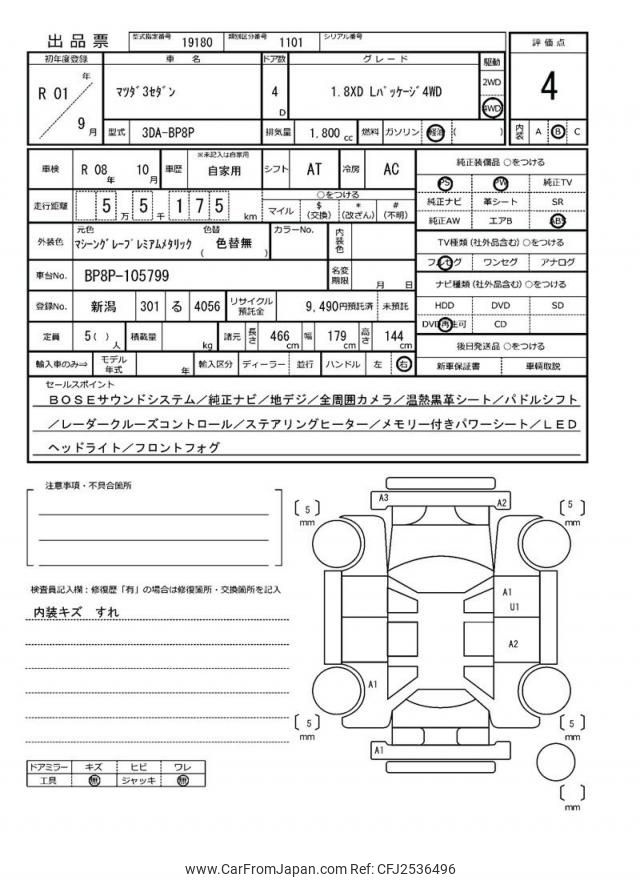 出品票
型式指定番号 19180 類別区分番号 1101 シリアル番号
評価点
4
内装 A B C
初年度登録 車名 ドア数 グレード 駆動
R 01 年 9 月
マツダ3セダン 4 D 1.8XD Lパッケージ4WD 2WD 4WD
型式 3DA-BP8P 排気量 1,800 cc 燃料 ガソリン 軽油 ( )
車検 R 08 年 10 月 車歴 ※未記入は自家用 自家用 シフト AT 冷房 AC
走行距離 5 5 万 5 千 1 7 5 km
○をつける
マイル $(交換) *(改ざん) #(不明)
外装色 元色 マシーングレープレミアムメタリック 色替 ( 色替無 ) カラーNo. 内装色
車台No. BP8P-105799 名変期限 月 日
登録No. 新潟 301 る 4056 リサイクル預託金 9,490円預託済 未預託
定員 5 ( ) 人 積載量 kg 諸元 長さ 466 cm 幅 179 cm 高さ 144 cm
輸入車のみ⇒ モデル年式 年 輸入区分 ディーラー 並行 ハンドル 左 右
純正装備品 ○をつける
PS PW 純正TV
純正ナビ 革シート SR
純正AW エアB ABS
TV種類 (社外品含む) ○をつける
フルセグ ワンセグ アナログ
ナビ種類 (社外品含む) ○をつける
HDD DVD SD
DVD再生可 CD
後日発送品 ○をつける
新車保証書 車輌取説
セールスポイント
BOSEサウンドシステム/純正ナビ/地デジ/全周囲カメラ/温熱黒革シート/パドルシフト
/レーダークルーズコントロール/ステアリングヒーター/メモリー付きパワーシート/LED
ヘッドライト/フロントフォグ
注意事項・不具合箇所
検査員記入欄:修復歴「有」の場合は修復箇所・交換箇所を記入
内装キズ すれ
ドアミラー キズ ヒビ ワレ
工具 無 ジャッキ 無
A3 A2
5 mm
5 mm
A1
U1
A2
A1
5 mm
5 mm
A1
mm
www.CarFromJapan.com Ref: CFJ2536496